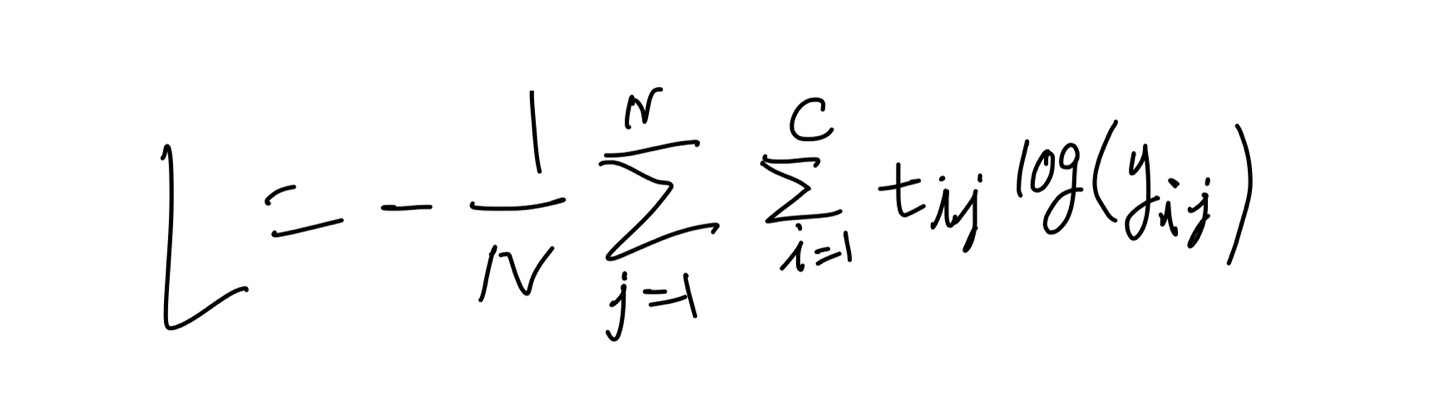 L = - \frac{1}{N} \sum_{j=1}^{N} \sum_{i=1}^{C} t_{ij} \log(y_{ij})